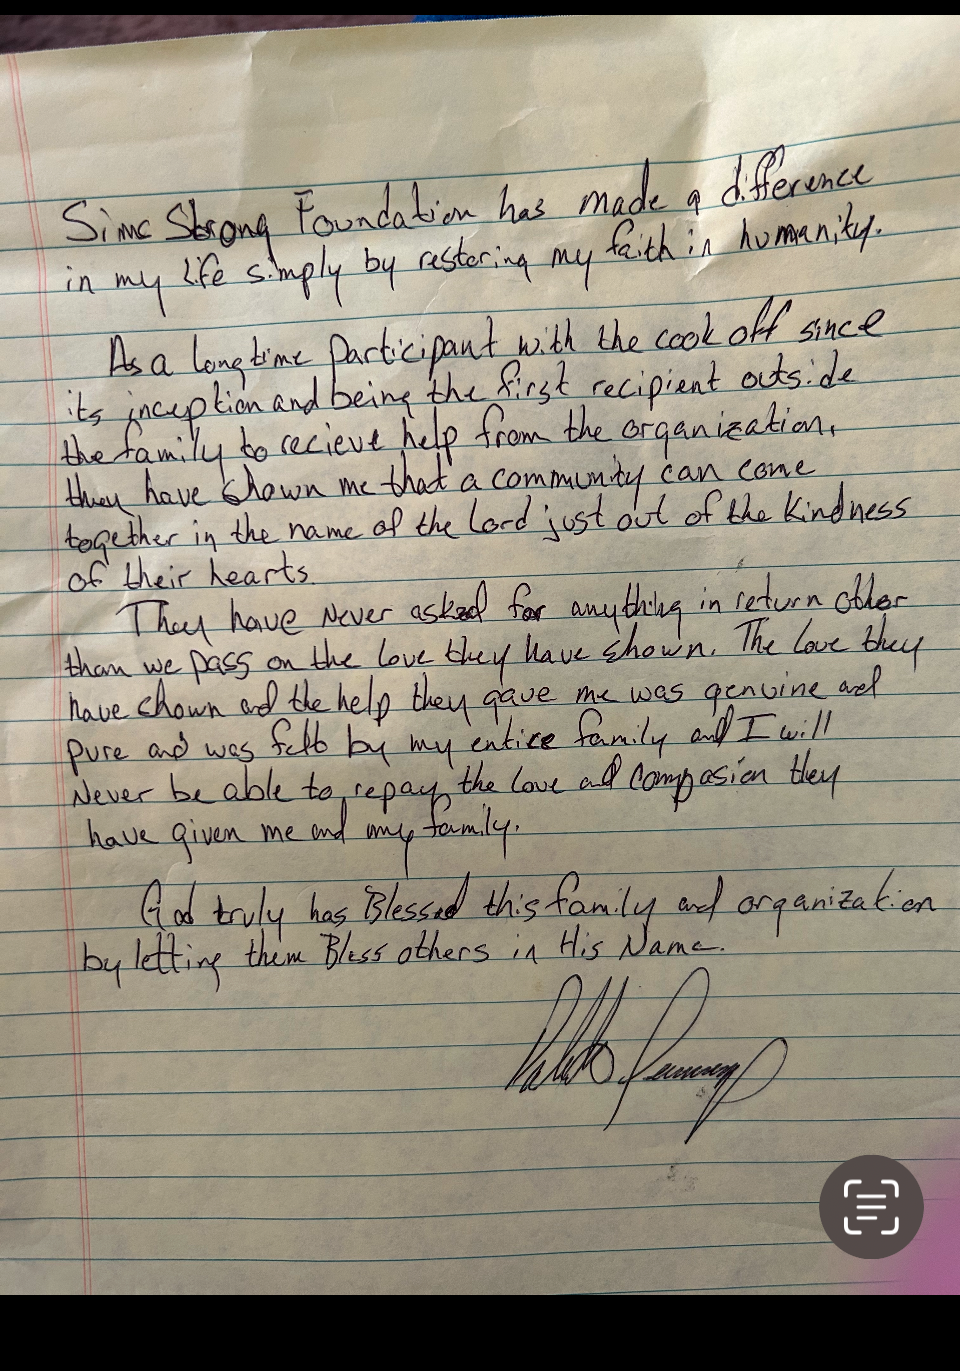 Sims Strong Foundation has made a difference
in my life simply by restoring my faith in humanity.
As a longtime participant with the cook off since
its inception and being the first recipient outside
the family to recieve help from the organization,
they have shown me that a community can come
together in the name of the Lord just out of the kindness
of their hearts.
They have Never asked for anything in return other
than we pass on the love they have shown. The love they
have shown and the help they gave me was genuine and
pure and was felt by my entire family and I will
Never be able to repay the love and compasion they
have given me and my family.
God truly has Blessed this family and organization
by letting them Bless others in His Name.